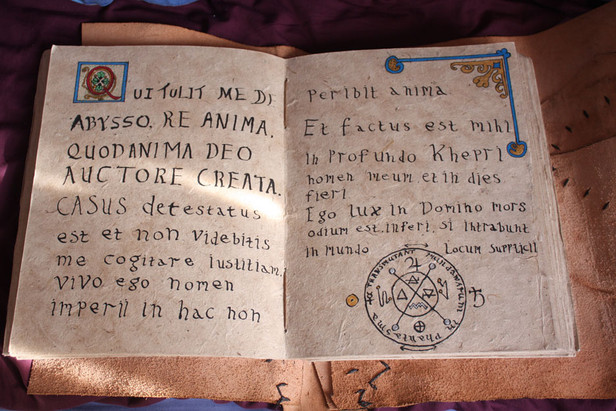 QUI TULIT ME DI
ABYSSO. RE ANIMA.
QUODANIMA DEO
AUCTORE CREATA.
CASUS detestatus
est et non videbitis
me cogitare iustitiam
vivo ego nomen
imperii in hac non
peribit anima
Et factus est mihi
in profundo Khepri
nomen meum et in dies
fieri
Ego lux in Domino mors
odium est inferi, si intrabunt
in mundo Locum